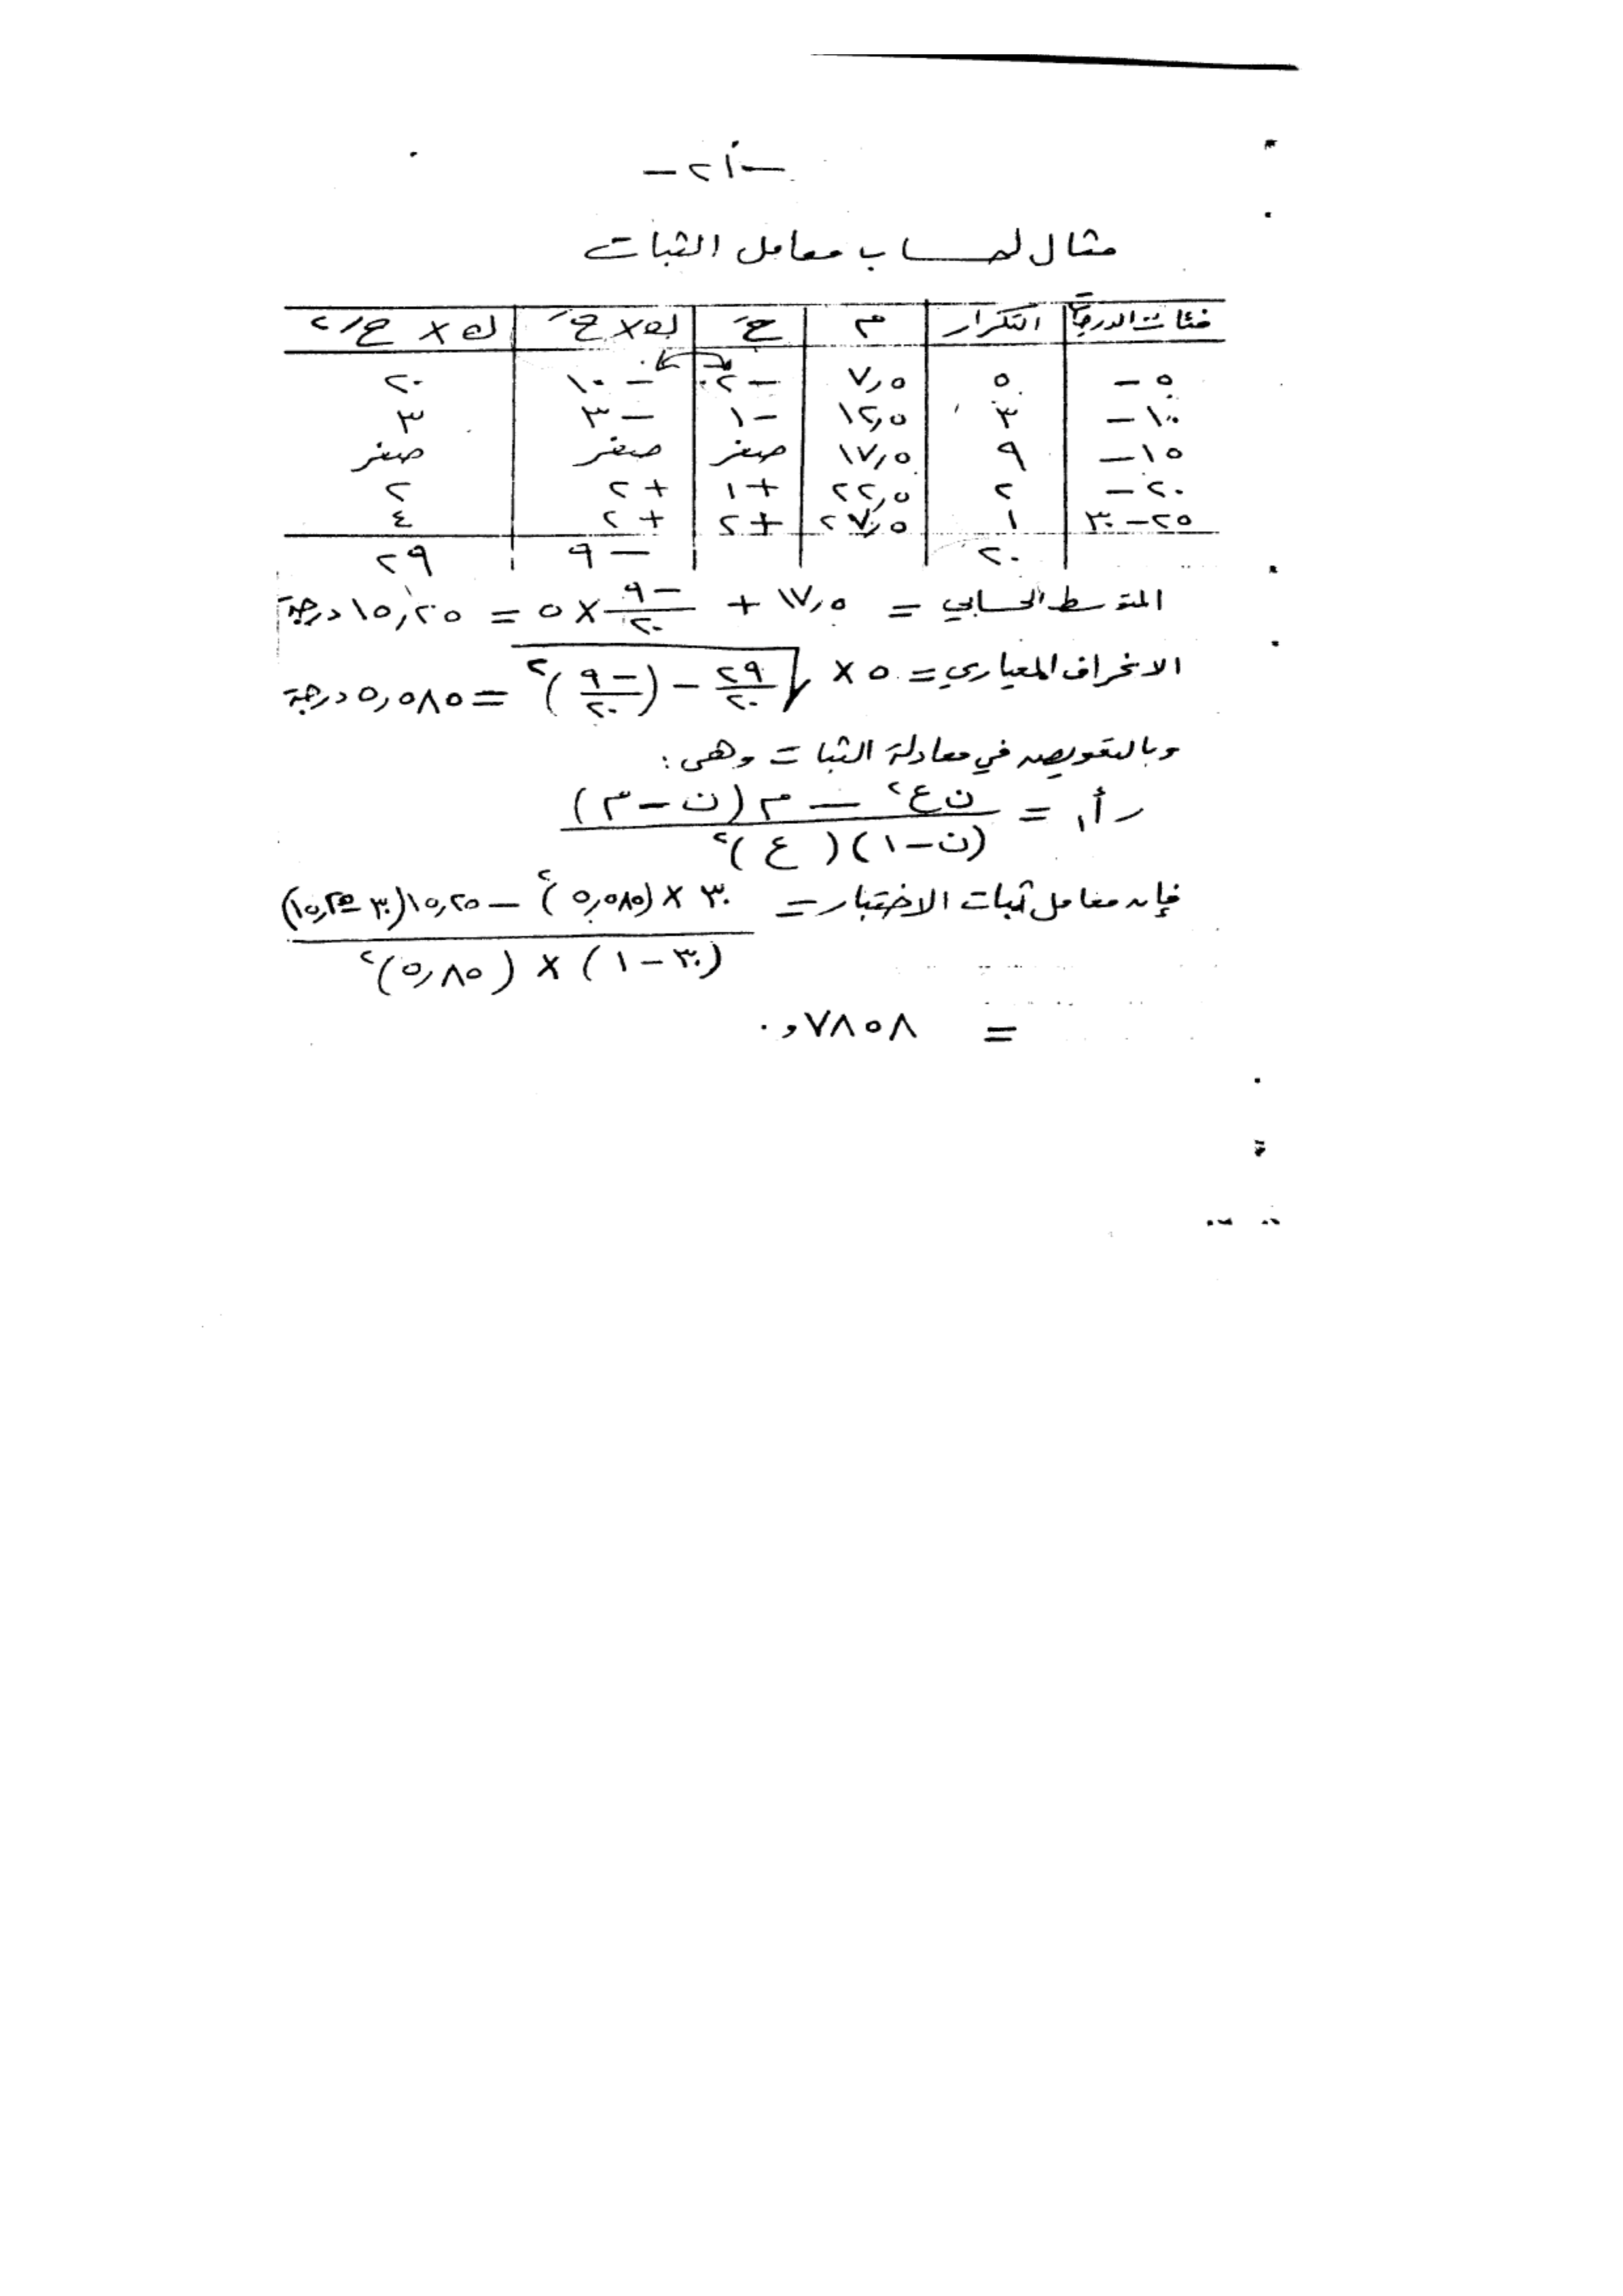 -٢١-
مثال لحساب معامل الثبات
فئات الدرجات | التكرار | م | حَ | ك × حَ | ك × ح/٢
٥ - | ٥ | ٧,٥ | -٢ | -١٠ | ٢٠
١٠ - | ٣ | ١٢,٥ | -١ | -٣ | ٣
١٥ - | ٩ | ١٧,٥ | صفر | صفر | صفر
٢٠ - | ٢ | ٢٢,٥ | +١ | +٢ | ٢
٢٥-٣٠ | ١ | ٢٧,٥ | +٢ | +٢ | ٤
٢٠ | -٩ | ٢٩
المتوسط الحسابي = ١٧,٥ + -٩/٢٠ × ٥ = ١٥,٢٥ درجة
الانحراف المعياري = ٥ × √(٢٩/٢٠ - (-٩/٢٠)٢) = ٥,٠٨٥ درجة
وبالتعويض في معادلة الثبات وهى :
ر١أ = ن ع٢ - م (ن - م)
(ن - ١) (ع)٢
فإن معامل ثبات الاختبار = ٣٠ × (٥,٠٨٥)٢ - ١٥,٢٥ (٣٠ - ١٥,٢٥)
(٣٠ - ١) × (٥,٨٥)٢
= ٠,٧٨٥٨